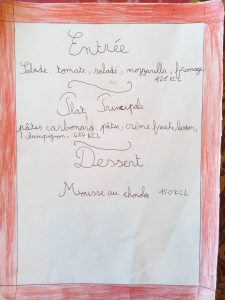 Entrée
Salade : tomate, salade, mozzarella, fromage
120 KCL
Plat Principale
pâtes carbonara pâtes, crème fraich, lardon,
champignon, 684 KCL
Dessert
Mousse au chocola 150 KCL